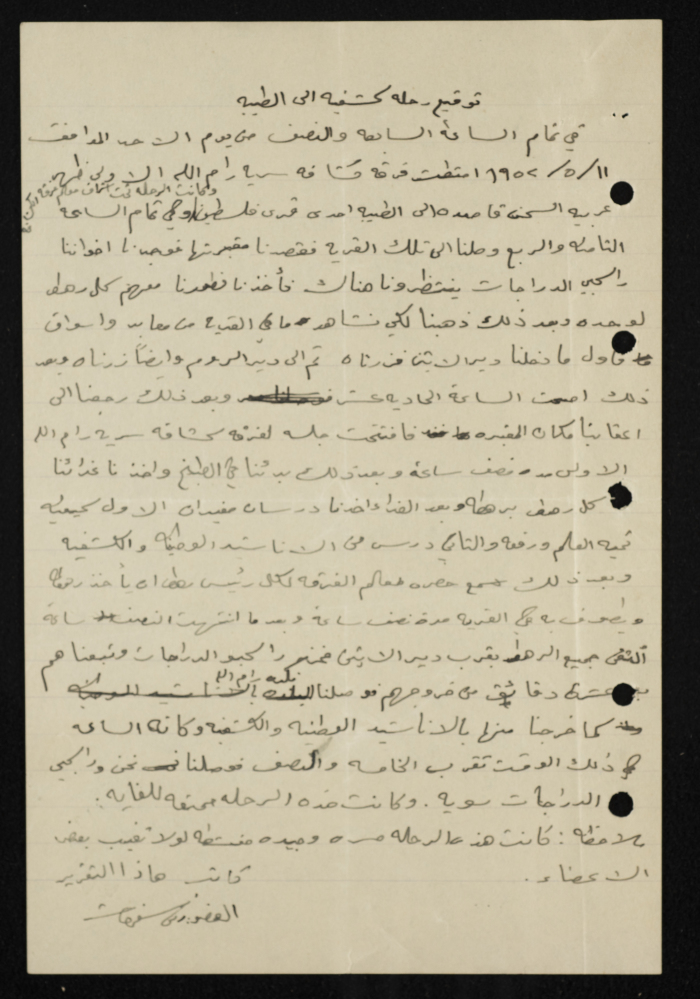 توقيع رحله كشفيه الى الطيبه
في تمام الساعة السابعه والنصف من يوم الاحد الموافق
١١/٥/١٩٥٢ امتطت فرقة كشافه سرية رام الله الاولى ظهر
وكانت الرحله تحت
عربيه الشحن قاصده الى الطيبه احدى قرى فلسطين وفي تمام الساعة
الثامنه والربع وصلنا الى تلك القريه فقصدنا مقبرتها فوجدنا اخواننا
راكبي الدراجات ينتظروننا هناك فأخذنا فطورنا معهم كل رهط
لوحده وبعد ذلك ذهبنا لكي نشاهد ما في القريه من معابد واسواق
فاول ما دخلنا دير الاتين فزرناه ثم الى دير الروم وايضاً زرناه وبعد
ذلك اصبحت الساعة الحاديه عشر وبعد ذلك رجعنا الى
اعقابنا مكان المقبره فافتتحت جلسه لفرقه كشافة سرية رام الله
الاولى مده نصف ساعة وبعد ذلك بدئنا في الطبخ واخذنا غدائنا
كل رهط برهطه وبعد الغداء اخذنا درسان مفيدان الاول كيفيه
تحيه العلم ورفعه والثاني درس من الاناشيد الوطنيه والكشفيه
وبعد ذلك سمح حضره معلم الفرقه لكل رئيس رهط ان يأخذ رهطه
ويطوف به في القريه مدة نصف ساعة وبعد ما انتهت النصف ساعة
التقى جميع الرهط بقرب دير الاتين فخرج راكبو الدراجات وتبعناهم
بعد عشرة دقائق من خروجهم فوصلنا بلده رام الله
كما خرجنا منها بالاناشيد الوطنيه والكشفيه وكانه الساعه
في ذلك الوقت تقرب الخامسه والنصف فوصلنا نحن وراكبي
الدراجات سويه. وكانت هذه الرحله ممتعه للغايه.
ملاحظه: كانت هذه الرحله مسره وجيده منشطه لولا تغيب بعض
الاعضاء. كاتب هاذا التقرير
العضو